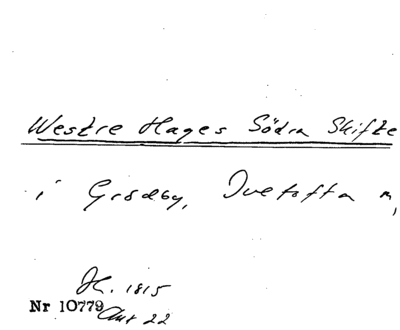 Westre Hages Södra Skifte
i Grödby, Ivetofta n,
H. 1815
Nr 10779
Akt 22